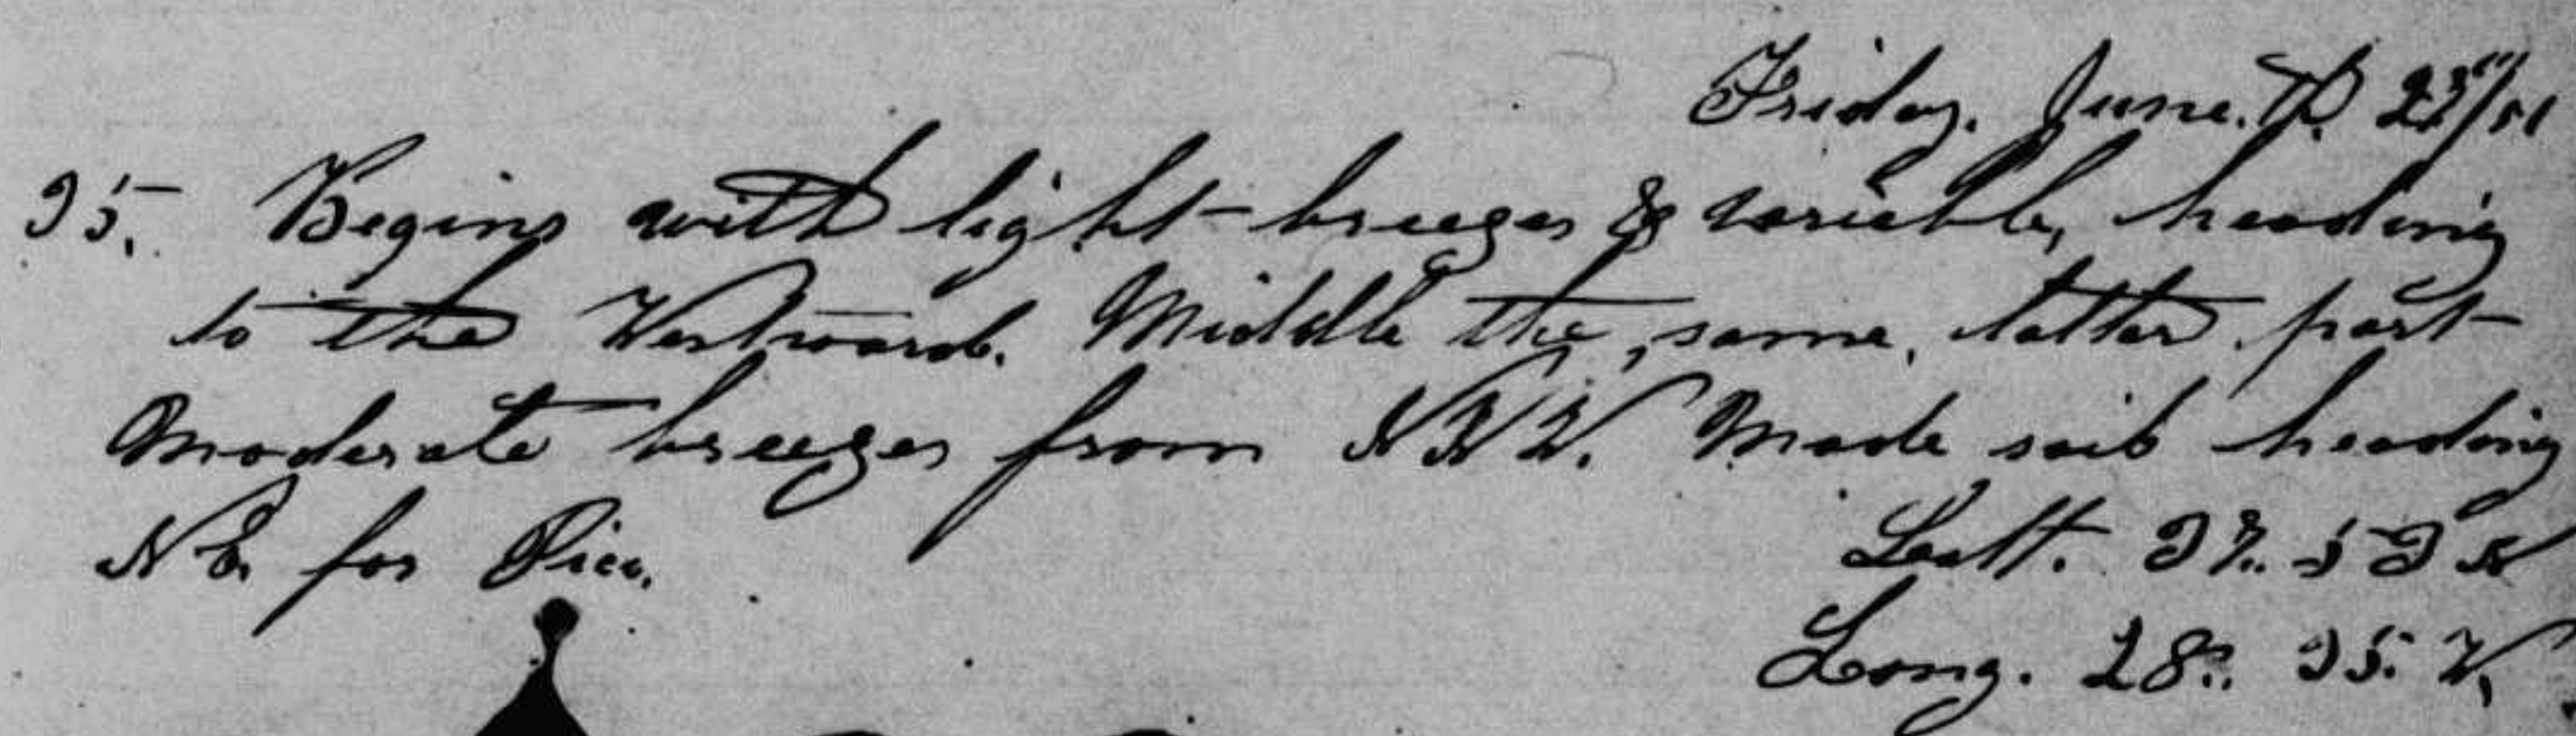 Friday. June. Th.
35. Begins with light breezes & variable, heading
to the Westward. Middle the same, latter part
Moderate breezes from NNW. Made sail heading
NE. for Pico.
Latt. 37.. 53 N
Long. 28°.. 35. W.